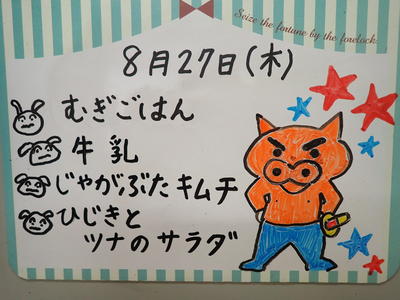 Seize the fortune by the forelock.
8月27日(木)
むぎごはん
牛乳
じゃがぶたキムチ
ひじきと
ツナのサラダ